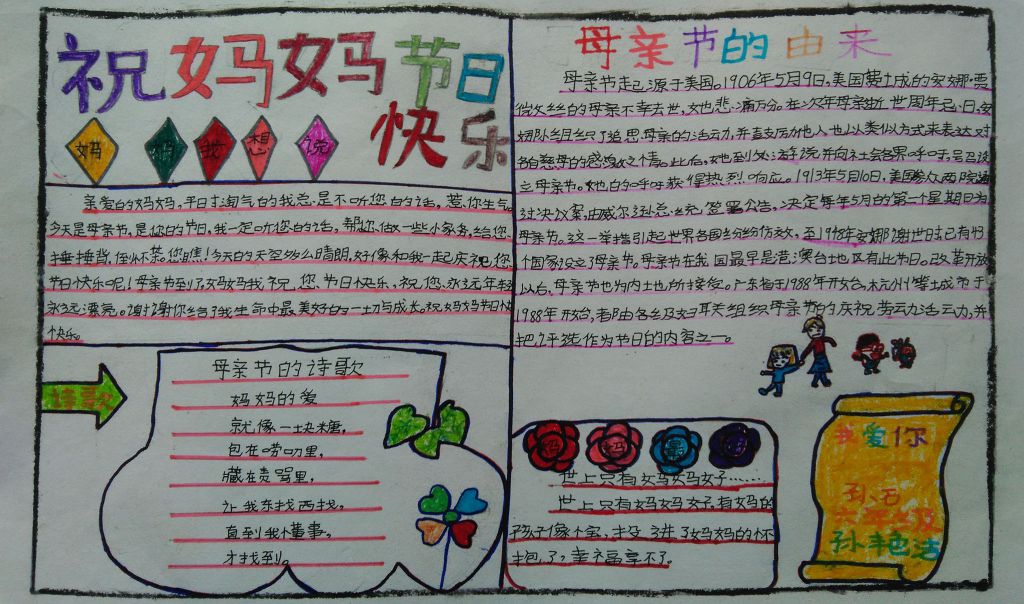 祝妈妈节日
快乐
妈 妈 我 想 说
亲爱的妈妈，平日淘气的我总是不听您的话。惹你生气。
今天是母亲节，是你的节日，我一定听您的话，帮你做一些小家务，给您
捶捶背，
您瞧！今天的天空多么晴朗，好像和我一起庆祝您
节日快乐呢！母亲节到了，妈妈我祝您，节日快乐。祝您永远年轻
永远漂亮。谢谢你给了我生命中最美好的一切与成长。祝妈妈节日
快乐。
诗歌
母亲节的诗歌
妈妈的爱
就像一块糖，
包在唠叨里，
藏在责骂里，
让我东找西找，
直到我懂事。
才找到。
母亲节的由来
母亲节起源于美国。1906年5月9日，美国费城的安娜·贾
薇丝的母亲不幸去世，她悲痛万分。在次年母亲逝世周年忌日，安
娜组织了追思母亲的活动，并鼓励他人也以类似方式来表达对
各自慈母的感激之情。此后，她到处游说并向社会各界呼吁，号召设
立母亲节。她的呼吁获得热烈响应。1913年5月10日，美国参众两院通
过决议案，由威尔逊总统签署公告，决定每年5月的第二个星期日为
母亲节。这一举措引起世界各国纷纷仿效，至1948年安娜谢世时已有43
个国家设立了母亲节。母亲节在我国最早是港澳台地区有此节日。改革开放
以后，母亲节也为内地所接受。广东省于1988年开始，杭州等城市于
1988年开始，者由各级妇联组织母亲节的庆祝活动，并
把评选作为节日的内容之一。
妈 妈 最
世上只有妈妈好……
世上只有妈妈好，有妈的
孩子像个宝，投进了妈妈的怀
抱了，幸福享不了。
我爱你
六年级
孙艳洁